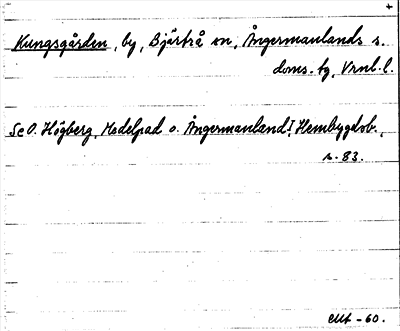 Kungsgården, by, Bjärtrå sn, Ångermanlands s.
doms. tg, Vrnl. l.
Se O. Högberg, Medelpad o. Ångermanland I, Hembygdsb.,
s. 83.
-60.